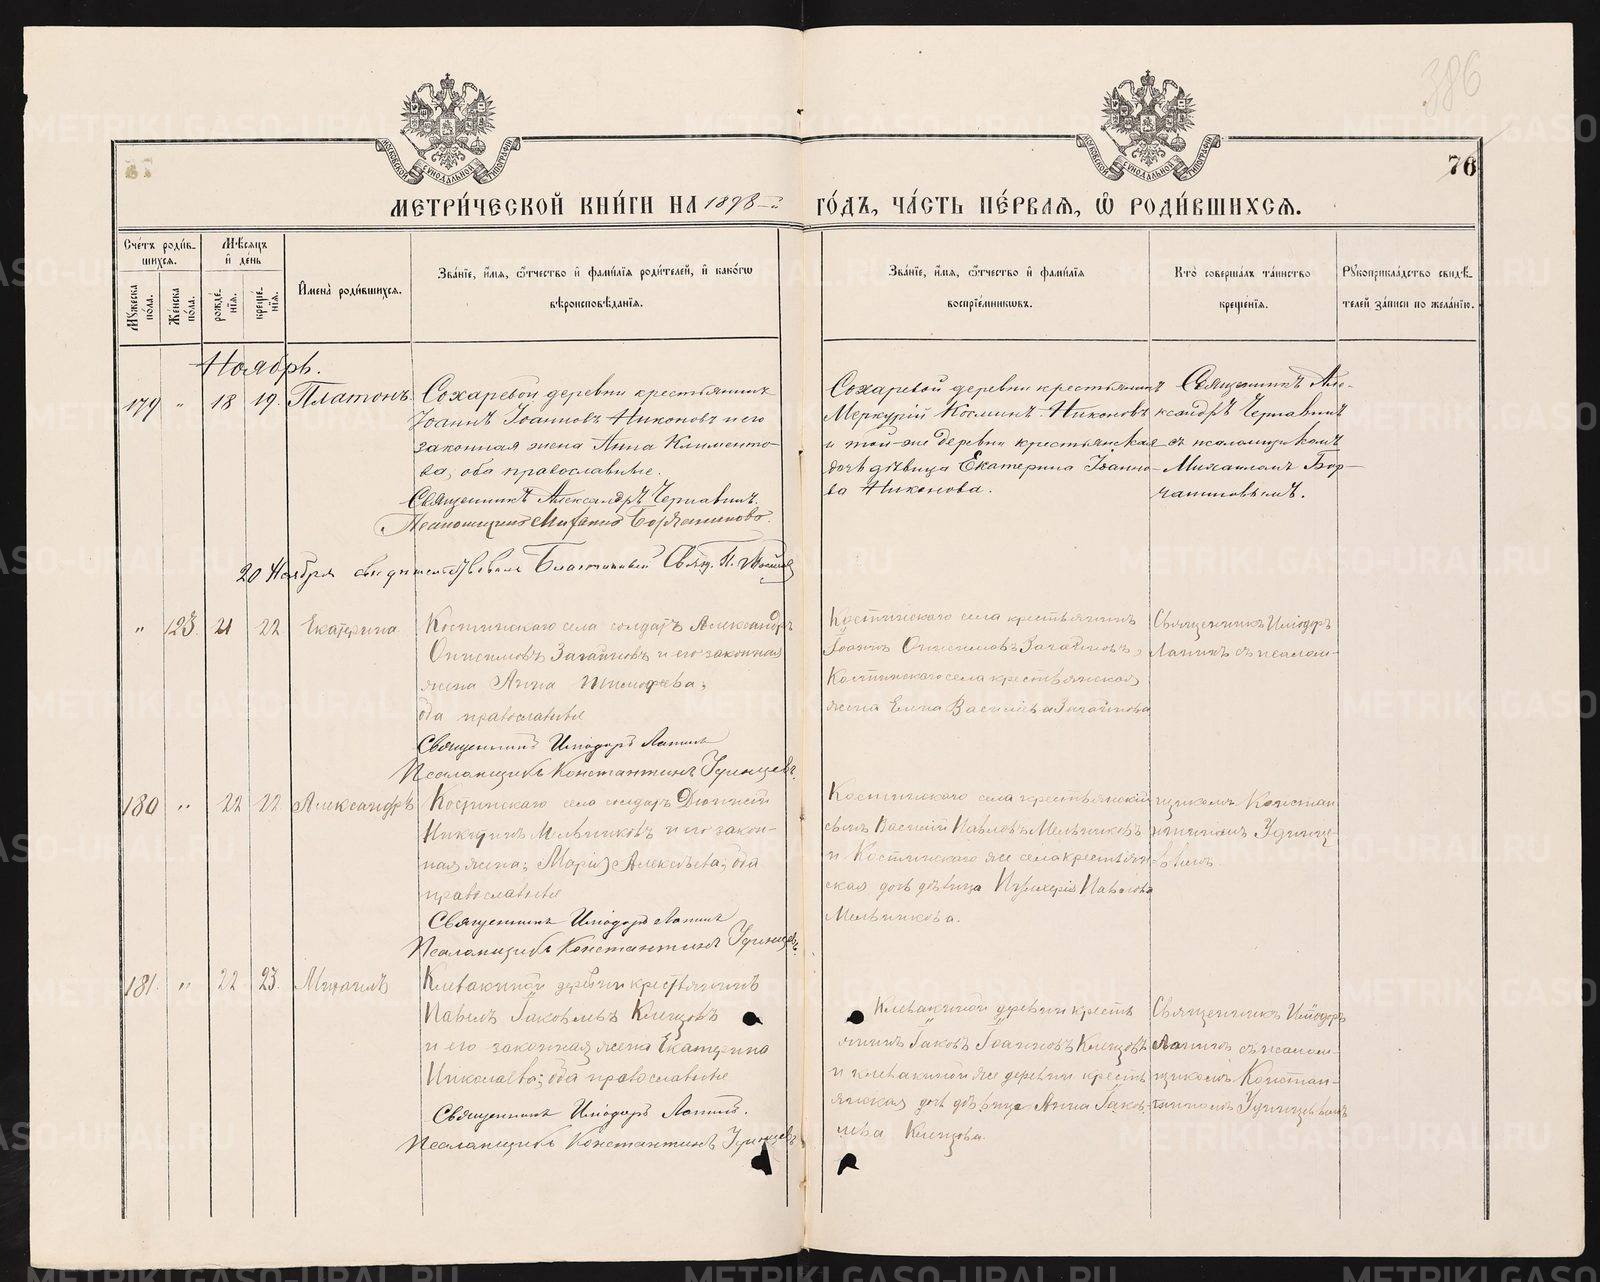 386
76
МОСКОВСКОЙ СѴНОДАЛЬНОЙ ТИПОГРАФІИ
МОСКОВСКОЙ СѴНОДАЛЬНОЙ ТИПОГРАФІИ
МЕТРИ́ЧЕСКОЙ КНИ́ГИ НА 1898-й ГО́ДЪ, ЧА́СТЬ ПЕ́РВАЯ, Ѿ РОДИ́ВШИХСЯ.
Сче́тъ роди́в-
шихся.
Мѣ́сяцъ
и҆ де́нь
Му́жеска
по́ла.
Же́нска
по́ла.
рожде́-
нїя.
креще́-
нїя.
И҆мена̀ роди́вшихся.
Зва́нїе, и҆́мя, ѻ҆́тчество и҆ фами́лїя роди́телей, и҆ како́гѡ
вѣроисповѣ́данїя.
Зва́нїе, и҆́мя, ѻ҆́тчество и҆ фами́лїя
воспрїе́мниковъ.
Кто̀ соверша́лъ та́инство
креще́нїя.
Рꙋкоприкла́дство свидѣ́-
телей за́писи по жела́нїю.
Ноябрь.
179 " 18 19. Платонъ.
Сохаревой деревни крестьянинъ
Іоаннъ Іоанновъ Никоновъ и его
законная жена Анна Клименто-
ва, оба православные.
Священникъ Александръ Чернавинъ.
Псаломщикъ Михаилъ Борчаниновъ.
Сохаревой деревни крестьянинъ
Меркурій Косминъ Никоновъ
и той-же деревни крестьянская
дочь дѣвица Екатерина Іоанно-
ва Никонова.
Священникъ Але-
ксандръ Чернавинъ
съ псаломщикомъ
Михаиломъ Бор-
чаниновымъ.
20 Ноября свидѣтельствовалъ Благочинный Свящ. П.
" 123. 21 22 Екатерина
Костинскаго села солдатъ Александръ
Онисимовъ Загайновъ и его законная
жена Анна Тимофеева;
оба православные
Священникъ Исидоръ Лапинъ
Псаломщикъ Константинъ Удинцевъ.
Костинскаго села крестьянинъ
Іоаннъ Онисимовъ Загайновъ,
Костинскаго села крестьянская
жена Елена Васильева Загайнова
Священникъ Исидоръ
Лапинъ съ псалом-
180 " 22 22 Александръ
Костинскаго села солдатъ Діонисій
Никитинъ Мельниковъ и его закон-
ная жена; Марія Алексѣева, оба
православные
Священникъ Исидоръ Лапинъ
Псаломщикъ Константинъ Удинцевъ.
Костинскаго села крестьянскій
сынъ Василій Павловъ Мельниковъ
и Костинскаго же села крестьян-
ская дочь дѣвица Павлова
Мельникова.
щикомъ Констан
тиномъ Удинце-
вымъ
181. " 22 23. Михаилъ
Клевакиной деревни крестьянинъ
Павелъ Іаковлевъ Клещовъ
и его законная жена Екатерина
Николаева; оба православные
Священникъ Исидоръ Лапинъ.
Псаломщикъ Константинъ Удинцевъ
Клевакиной деревни кресть
янинъ Іаковъ Іоанновъ Клещовъ
и клевакиной же деревни кресть
янская дочь дѣвица Анна Іаков-
лева Клещова.
Священникъ Исидоръ
Лапинъ съ псалом-
щикомъ Констан-
тиномъ Удинцевымъ